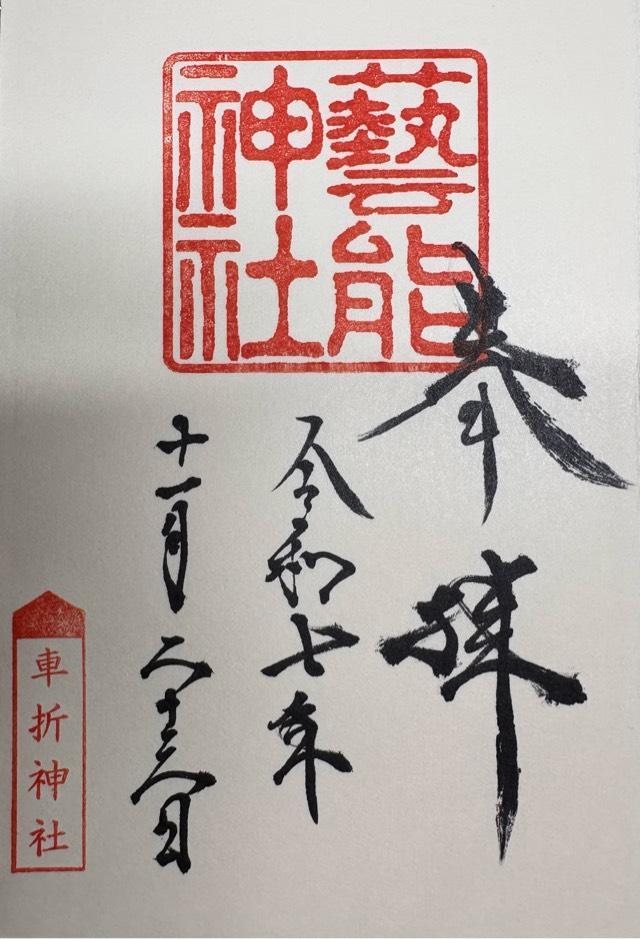 藝能
神社
奉拝
令和七年
十一月二十六日
車折神社